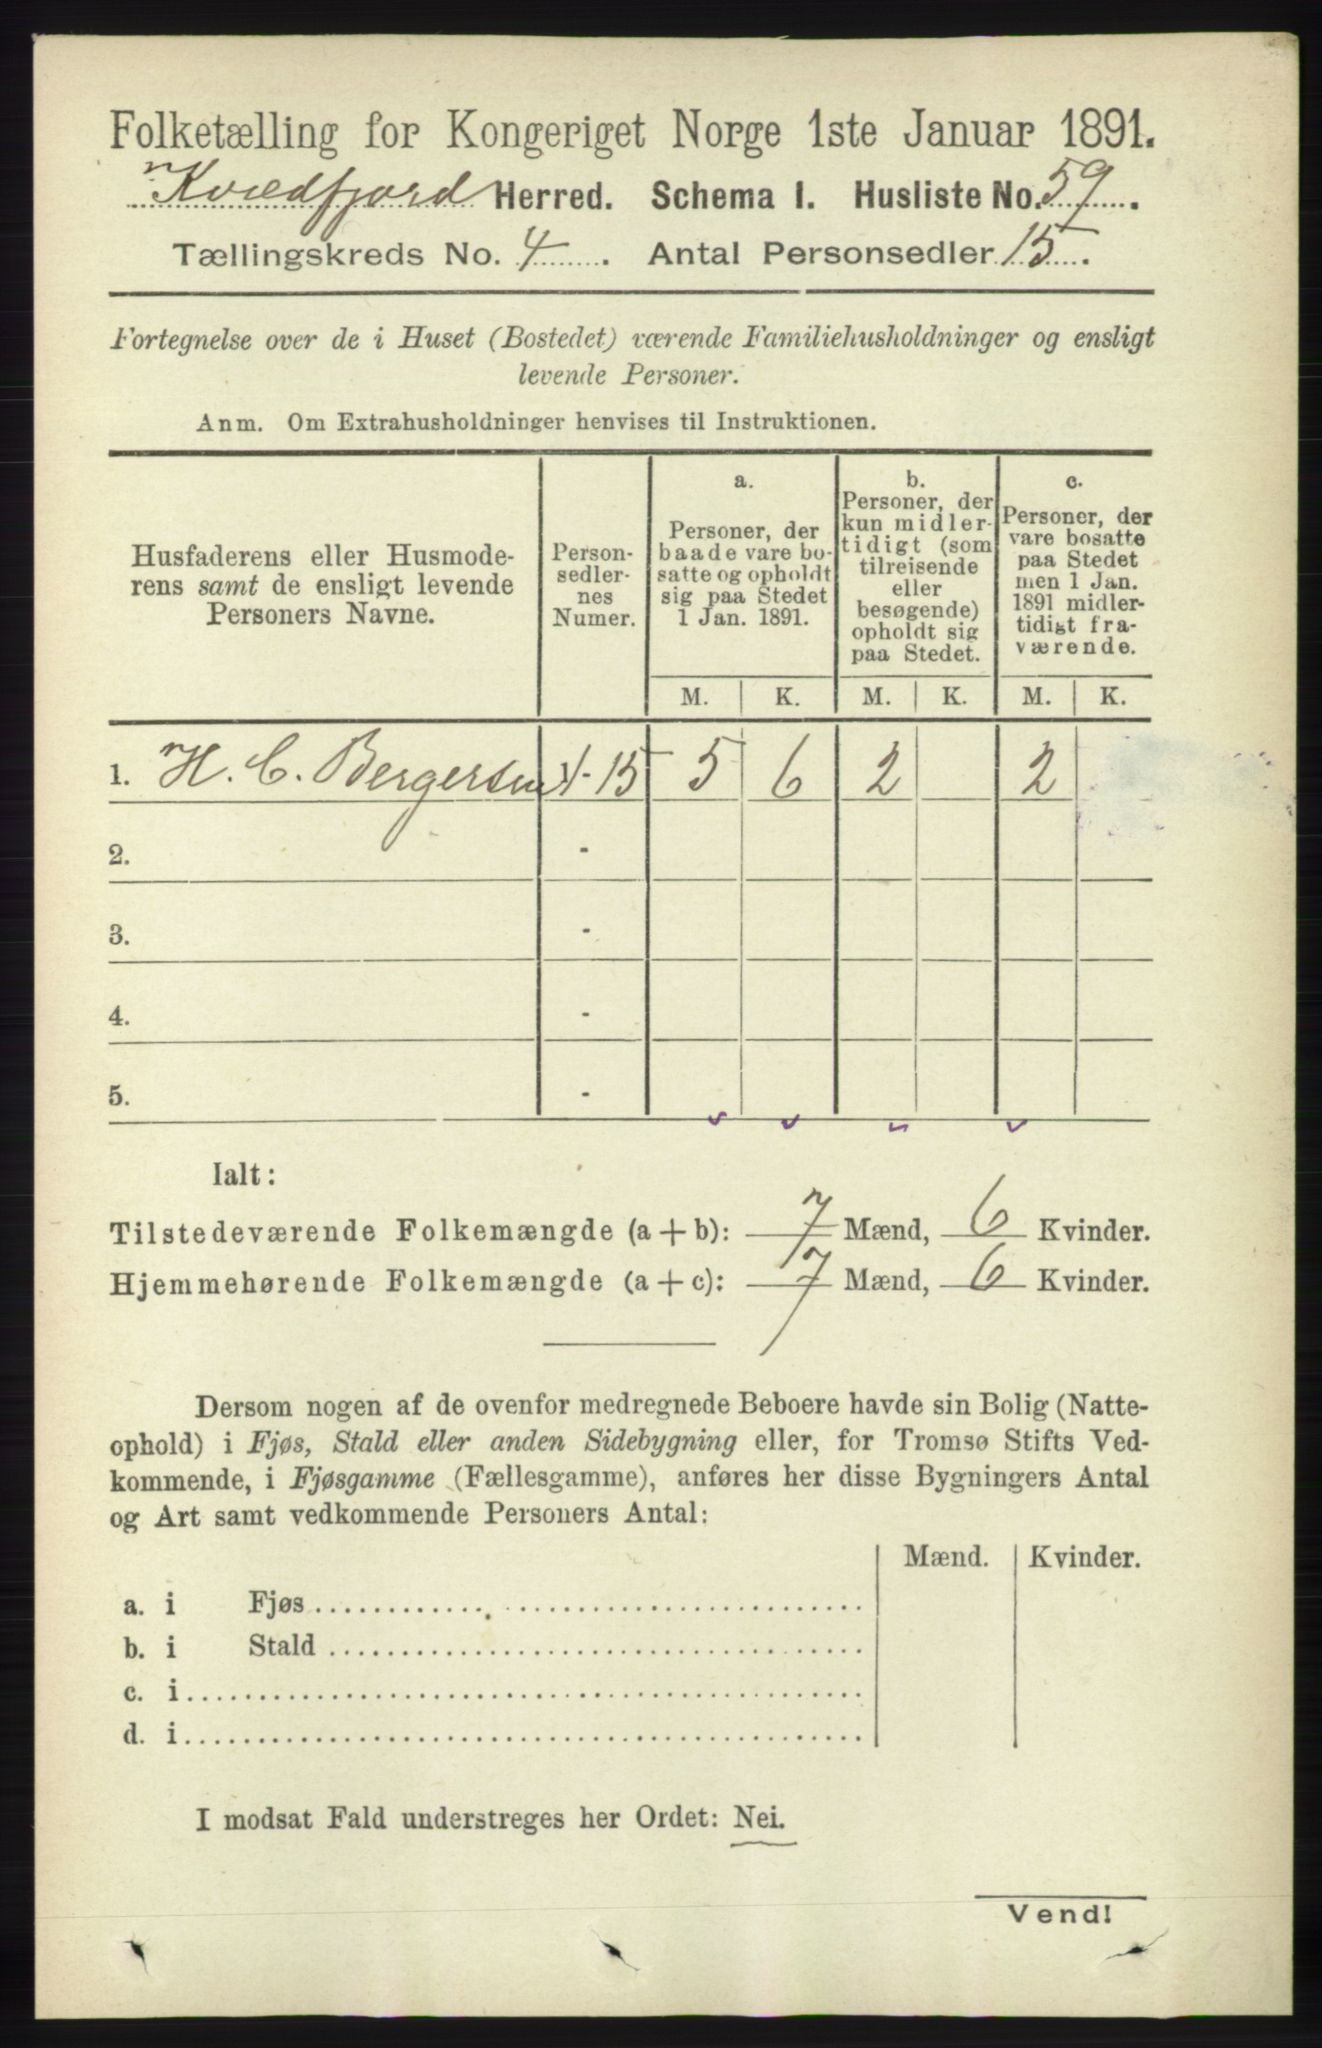 Folketælling for Kongeriget Norge 1ste Januar 1891.
Kvædfjord Herred. Schema I. Husliste No. 59.
Tællingskreds No. 4. Antal Personsedler 15.
Fortegnelse over de i Huset (Bostedet) værende Familiehusholdninger og ensligt
levende Personer.
Anm. Om Extrahusholdninger henvises til Instruktionen.
Husfaderens eller Husmode-
rens samt de ensligt levende
Personers Navne.
Person-
sedler-
nes
Numer.
a.
Personer, der
baade vare bo-
satte og opholdt
sig paa Stedet
1 Jan. 1891.
b.
Personer, der
kun midler-
tidigt (som
tilreisende
eller
besøgende)
opholdt sig
paa Stedet.
c.
Personer, der
vare bosatte
paa Stedet
men 1 Jan.
1891 midler-
tidigt fra-
værende.
M. K. M. K. M. K.
1. H. C. Bergersen 1-15 5 6 2 2
2. -
3. -
4. -
5. -
Ialt:
Tilstedeværende Folkemængde (a + b): 7 Mænd, 6 Kvinder.
Hjemmehørende Folkemængde (a + c): 7 Mænd, 6 Kvinder.
Dersom nogen af de ovenfor medregnede Beboere havde sin Bolig (Natte-
ophold) i Fjøs, Stald eller anden Sidebygning eller, for Tromsø Stifts Ved-
kommende, i Fjøsgamme (Fællesgamme), anføres her disse Bygningers Antal
og Art samt vedkommende Personers Antal:
Mænd. Kvinder.
a. i Fjøs
b. i Stald
c. i
d. i
I modsat Fald understreges her Ordet: Nei.
Vend!